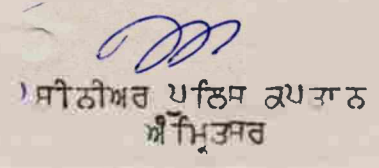 ਸੀਨੀਅਰ ਪੁਲਿਸ ਕਪਤਾਨ
ਅੰਮ੍ਰਿਤਸਰ